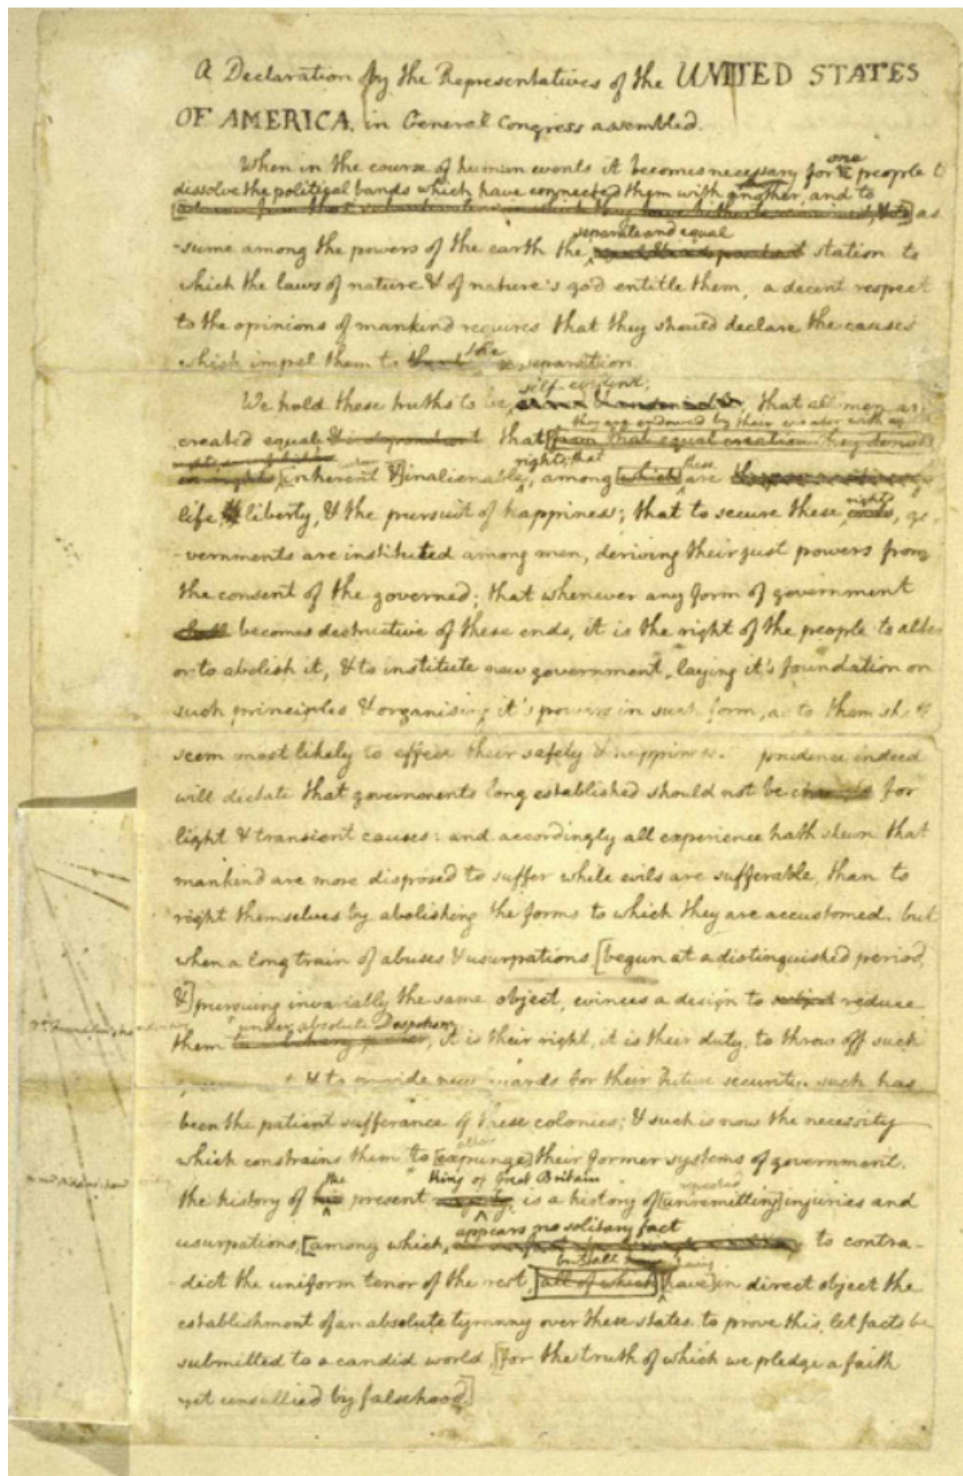 A Declaration by the Representatives of the UNITED STATES
OF AMERICA, in General Congress assembled.
When in the course of human events it becomes necessary for one people to
dissolve the political bands which have connected them with another, and to
as
separate and equal
-sume among the powers of the earth the station to
which the laws of nature & of nature's god entitle them, a decent respect
to the opinions of mankind requires that they should declare the causes
which impel them to the separation.
self-evident;
We hold these truths to be, that all men are
they are endowed by their creator with
created equal & independant that from that equal creation they derive
rights; that these
[inherent &] inalienable, among which are
rights
life, & liberty, & the pursuit of happiness; that to secure these, go-
-vernments are instituted among men, deriving their just powers from
the consent of the governed; that whenever any form of government
becomes destructive of these ends, it is the right of the people to alter
or to abolish it, & to institute new government, laying it's foundation on
such principles & organising it's powers in such form, as to them shall
seem most likely to effect their safety & happiness. prudence indeed
will dictate that governments long established should not be changed for
light & transient causes: and accordingly all experience hath shewn that
mankind are more disposed to suffer while evils are sufferable, than to
right themselves by abolishing the forms to which they are accustomed. but
when a long train of abuses & usurpations [begun at a distinguished period,
&] pursuing invariably the same object, evinces a design to subject reduce
under absolute Despotism
them, it is their right, it is their duty, to throw off such
& to provide new guards for their future security. such has
been the patient sufferance of these colonies; & such is now the necessity
alter
which constrains them to [expunge] their former systems of government.
the king of Great Britain repeated
the history of his present is a history of [unremitting] injuries and
appears no solitary fact
usurpations, [among which, to contra-
but all having
-dict the uniform tenor of the rest, all of which [have] in direct object the
establishment of an absolute tyranny over these states. to prove this, let facts be
submitted to a candid world, [for the truth of which we pledge a faith
yet unsullied by falsehood.]